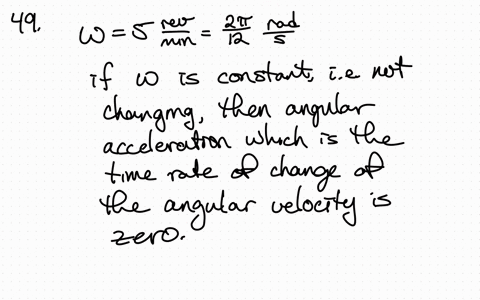 49. ω = 5 rev/min = 2π/12 rad/s
if ω is constant, i.e not
changing, then angular
acceleration which is the
time rate of change of
the angular velocity is
zero.